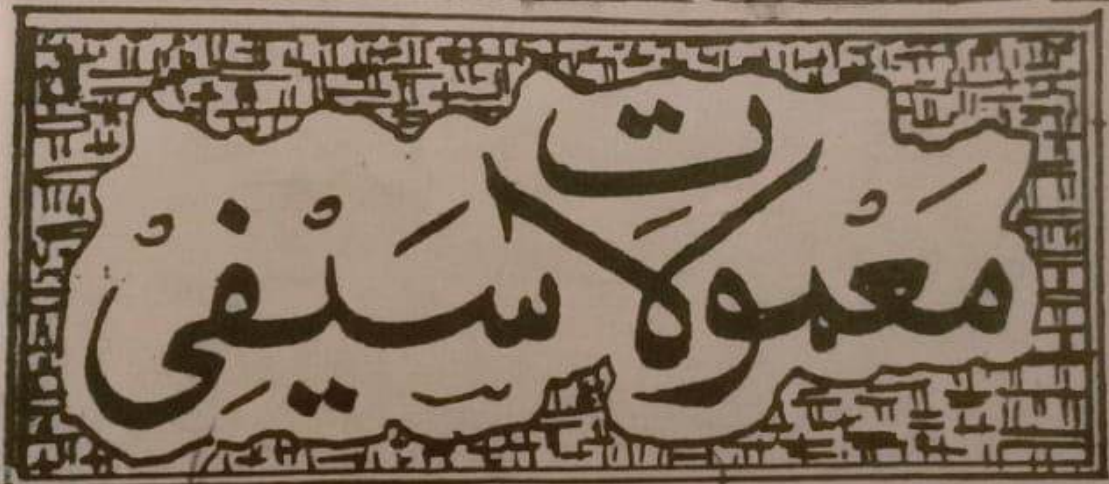 مَعْمُولَات سَيْفِیْ